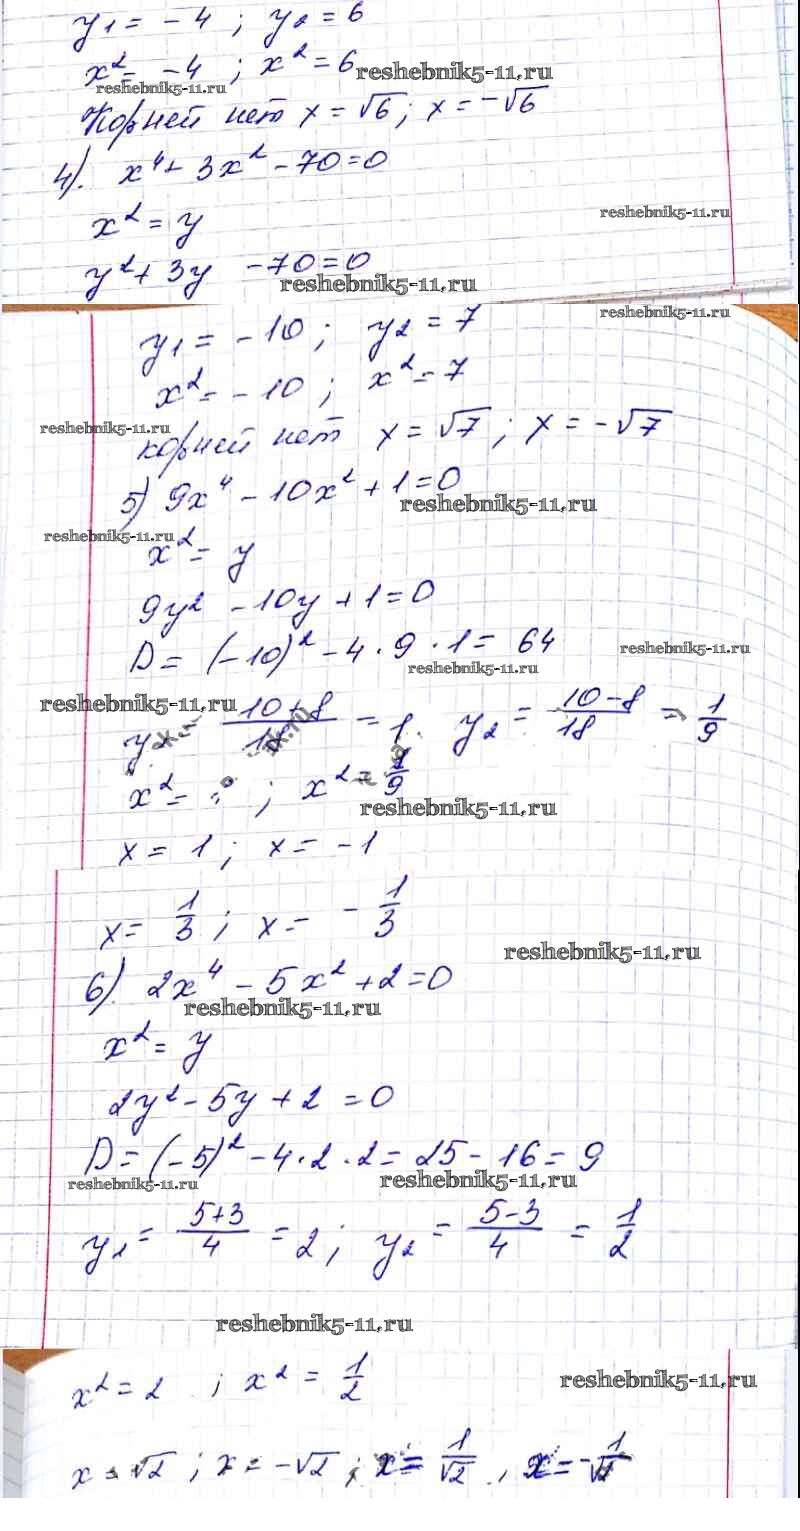 y₁ = -4 ; y₂ = 6
x² = -4 ; x² = 6 reshebnik5-11.ru
reshebnik5-11.ru
Корней нет x = √6; x = -√6
4). x⁴ + 3x² - 70 = 0
x² = y reshebnik5-11.ru
y² + 3y - 70 = 0
reshebnik5-11.ru
reshebnik5-11.ru
y₁ = -10 ; y₂ = 7
x² = -10 ; x² = 7
reshebnik5-11.ru
корней нет x = √7 ; x = -√7
5) 9x⁴ - 10x² + 1 = 0
reshebnik5-11.ru
reshebnik5-11.ru
x² = y
9y² - 10y + 1 = 0
D = (-10)² - 4 · 9 · 1 = 64
reshebnik5-11.ru
reshebnik5-11.ru
reshebnik5-11.ru
= (10+8)/18 = 1 y₂ = (10-8)/18 = 1/9
x² = ; x² = 1/9
reshebnik5-11.ru
x = 1 ; x = -1
x = 1/3 ; x = -1/3
reshebnik5-11.ru
6). 2x⁴ - 5x² + 2 = 0
reshebnik5-11.ru
x² = y
2y² - 5y + 2 = 0
D = (-5)² - 4 · 2 · 2 = 25 - 16 = 9
reshebnik5-11.ru
reshebnik5-11.ru
y₁ = (5+3)/4 = 2 ; y₂ = (5-3)/4 = 1/2
reshebnik5-11.ru
x² = 2 ; x² = 1/2 reshebnik5-11.ru
x = √2 ; x = -√2 ; x = 1/√2 , x =